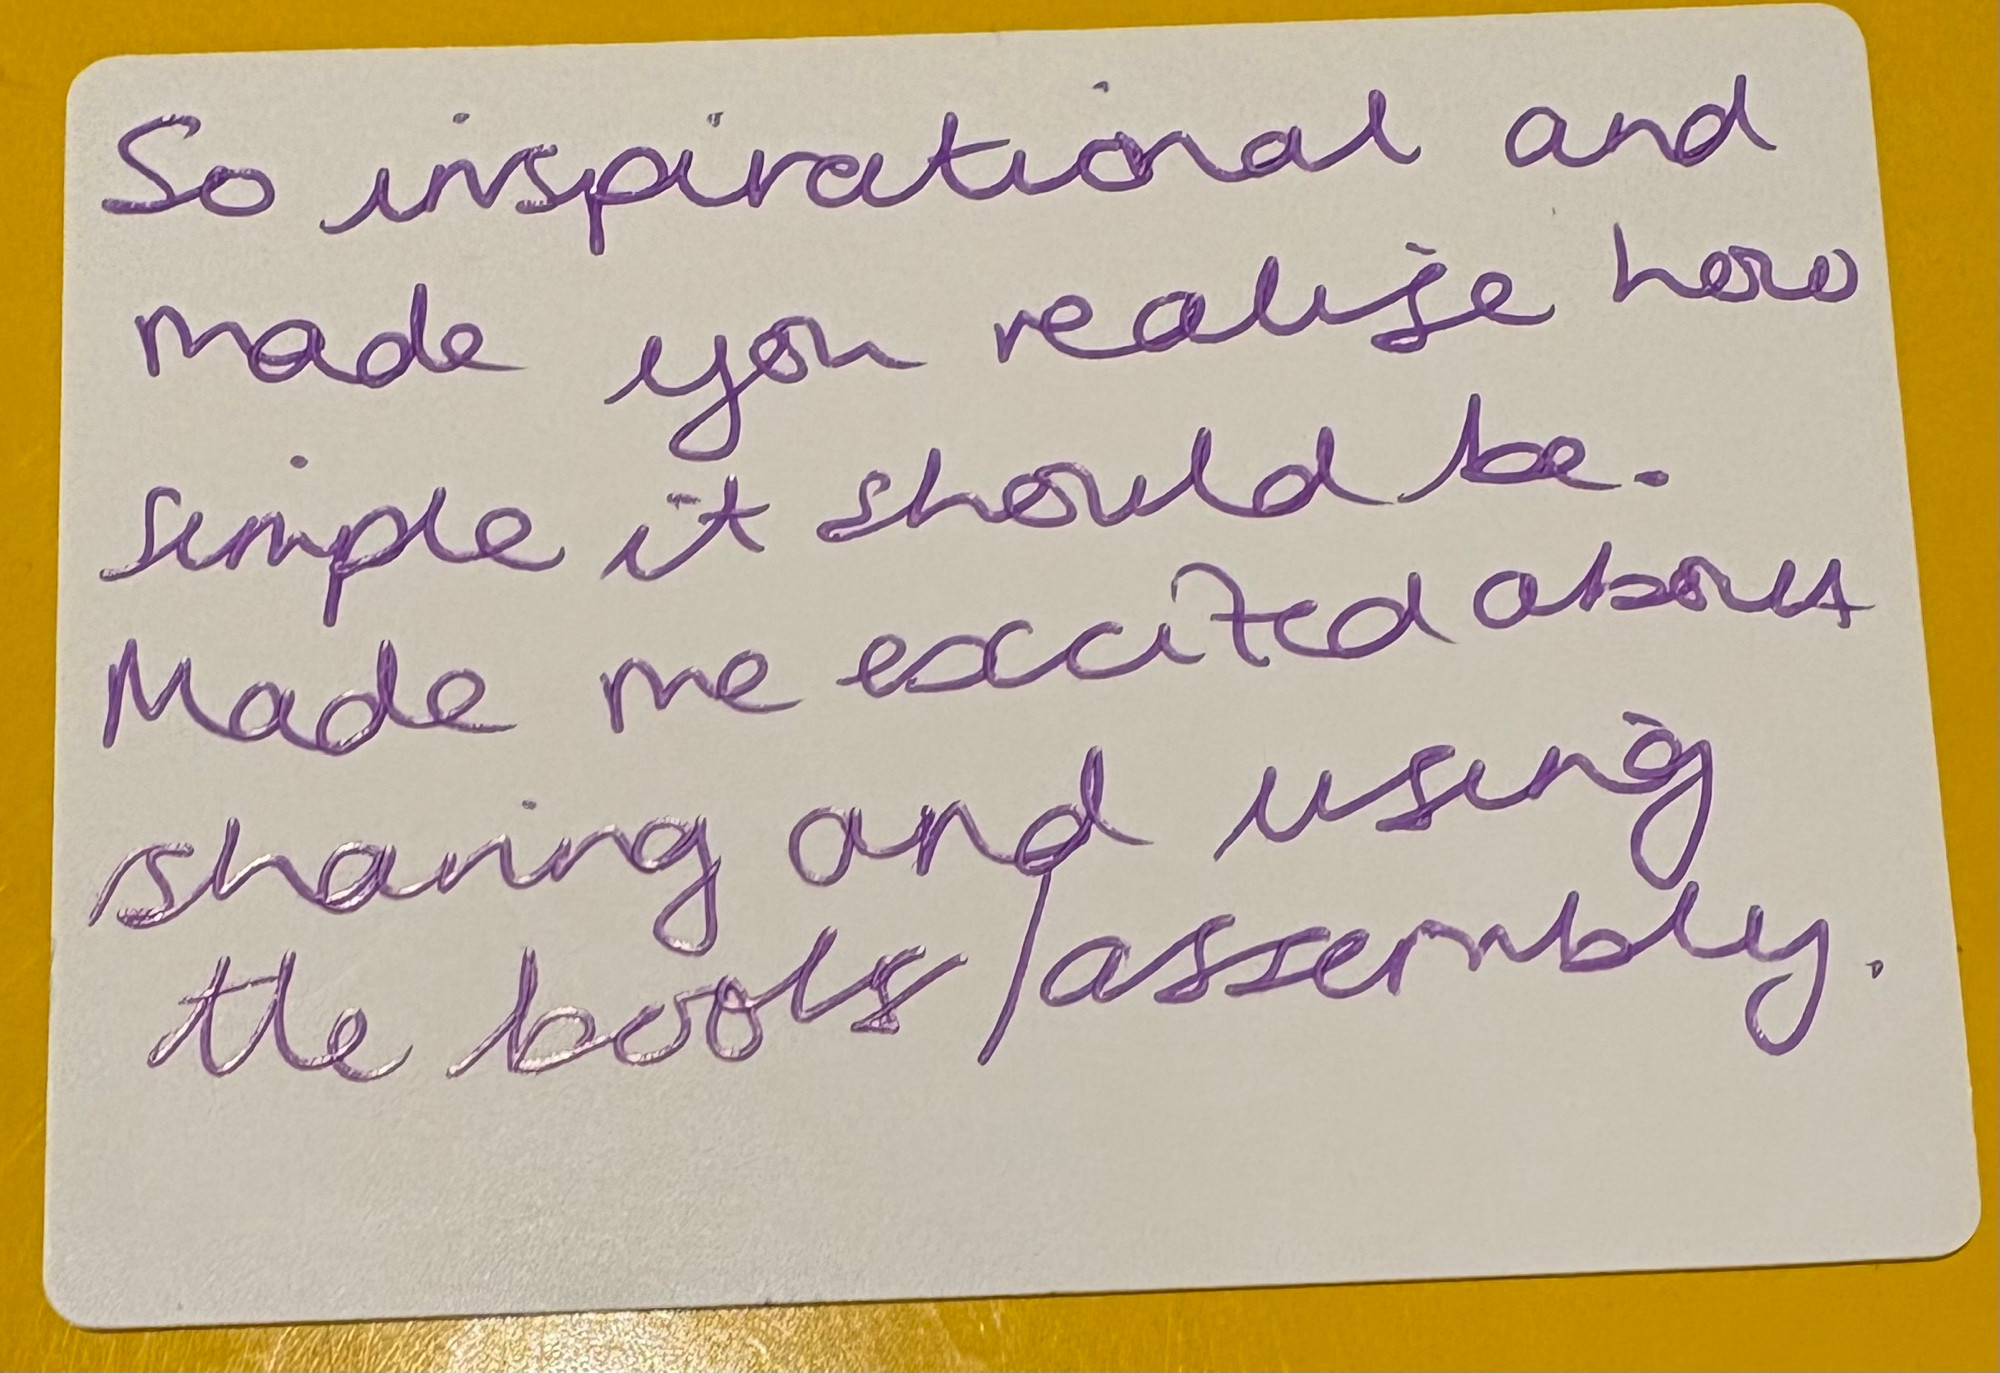 So inspirational and
made you realise how
simple it should be.
Made me excited about
sharing and using
the books/assembly.